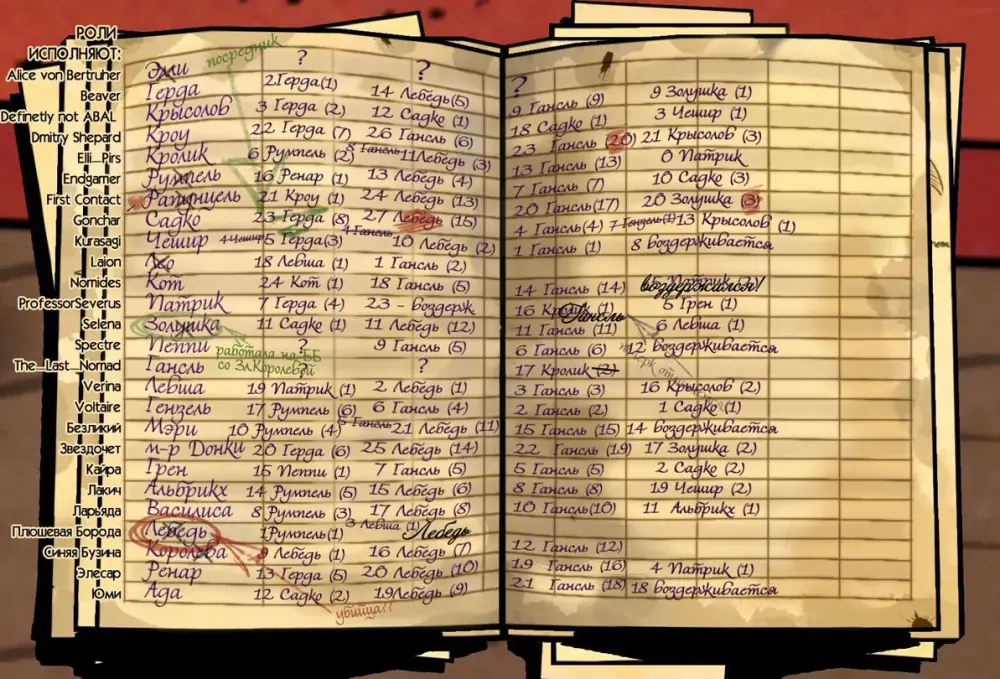 РОЛИ
ИСПОЛНЯЮТ:
посредник
Alice von Bertruher Эми ? ? ?
Beaver Герда 2 Герда (1) 14 Лебедь (5) 9 Гансль (9) 9 Золушка (1)
Definetly not ABAL Крысолов 3 Герда (2) 12 Садко (1) 18 Садко (1) 3 Чешир (1)
Dmitry Shepard Кроу 22 Герда (7) 26 Гансль (6) 23 Гансль (20) 21 Крысолов (3)
Elli_Pirs Кролик 6 Румпель (2) 8 Гансль 11 Лебедь (3) 13 Гансль (13) 0 Патрик
Endgamer Румпель 16 Ренар (1) 13 Лебедь (4) 7 Гансль (7) 10 Садко (3)
First Contact Рапунцель 21 Кроу (1) 24 Лебедь (13) 20 Гансль (17) 20 Золушка (3)
Gonchar Садко 23 Герда (8) 27 Лебедь (15) 4 Гансль (4) 7 Гансль (1) 13 Крысолов (1)
Kurasagi Чешир 4 Чешир 5 Герда (3) 4 Гансль 10 Лебедь (2) 1 Гансль (1) 8 воздерживается
Laion 18 Левша (1) 1 Гансль (2)
Nomides Кот 24 Кот (1) 18 Гансль (5) 14 Гансль (14) воздержался!
ProfessorSeverus Патрик 7 Герда (4) 23 - воздерж 16 (1) Гансль 5 Грен (1)
Selena Золушка 11 Садко (1) 11 Лебедь (12) 11 Гансль (11) 6 Левша (1)
Spectre Пеппи ? 9 Гансль (5) 6 Гансль (6) 12 воздерживается
работала на ББ
со Зл.Королевой
The_Last_Nomad Гансль ? ? 17 Кролик (2)
Verina Левша 19 Патрик (1) 2 Лебедь (1) 3 Гансль (3) 16 Крысолов (2)
Voltaire Гензель 17 Румпель (6) 6 Гансль (4) 2 Гансль (2) 1 Садко (1)
Безликий Мэри 10 Румпель (4) 5 Гансль 21 Лебедь (11) 15 Гансль (15) 14 воздерживается
Звездочет м-р Донки 20 Герда (6) 25 Лебедь (14) 22 Гансль (19) 17 Золушка (2)
Кайра Грен 15 Пеппи (1) 7 Гансль (5) 5 Гансль (5) 2 Садко (2)
Лакич Альбрихх 14 Румпель (5) 15 Лебедь (6) 8 Гансль (8) 19 Чешир (2)
Ларьяда Василиса 8 Румпель (3) 17 Лебедь (8) 10 Гансль (10) 11 Альбрихх (1)
Плюшевая Борода Лебедь 1 Румпель (1) 3 Левша (1) Лебедь
Синяя Бузина Королева 9 Лебедь (1) 16 Лебедь (7) 12 Гансль (12)
Элесар Ренар 13 Герда (5) 20 Лебедь (10) 19 Гансль (16) 4 Патрик (1)
Юми Ада 12 Садко (2) 19 Лебедь (9) 21 Гансль (18) 18 воздерживается
убийца??